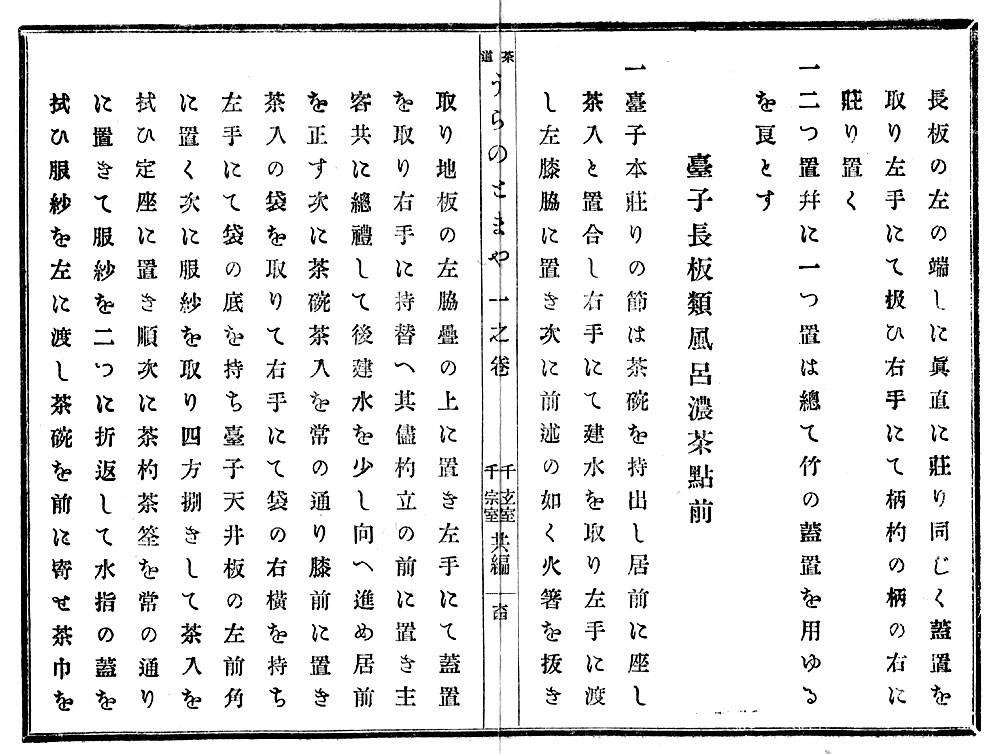 長板の左の端しに眞直に莊り同じく蓋置を
取り左手にて扱ひ右手にて柄杓の柄の右に
莊り置く
一二つ置幷に一つ置は總て竹の蓋置を用ゆる
を䒾とす
臺子長板類風呂濃茶點前
一臺子本莊りの節は茶碗を持出し居前に座し
茶入と置合し右手にて建水を取り左手に渡
し左膝脇に置き次に前述の如く火箸を拔き
茶道
うらのとまや一之卷
千玄室
千宗室
共編
取り地板の左脇疊の上に置き左手にて蓋置
を取り右手に持替へ其儘杓立の前に置き主
客共に總禮して後建水を少し向へ進め居前
を正す次に茶碗茶入を常の通り膝前に置き
茶入の袋を取りて右手にて袋の右橫を持ち
左手にて袋の底を持ち臺子天井板の左前角
に置く次に服紗を取り四方捌きして茶入を
拭ひ定座に置き順次に茶杓茶筌を常の通り
に置きて服紗を二つに折返して水指の蓋を
拭ひ服紗を左に渡し茶碗を前に寄せ茶巾を